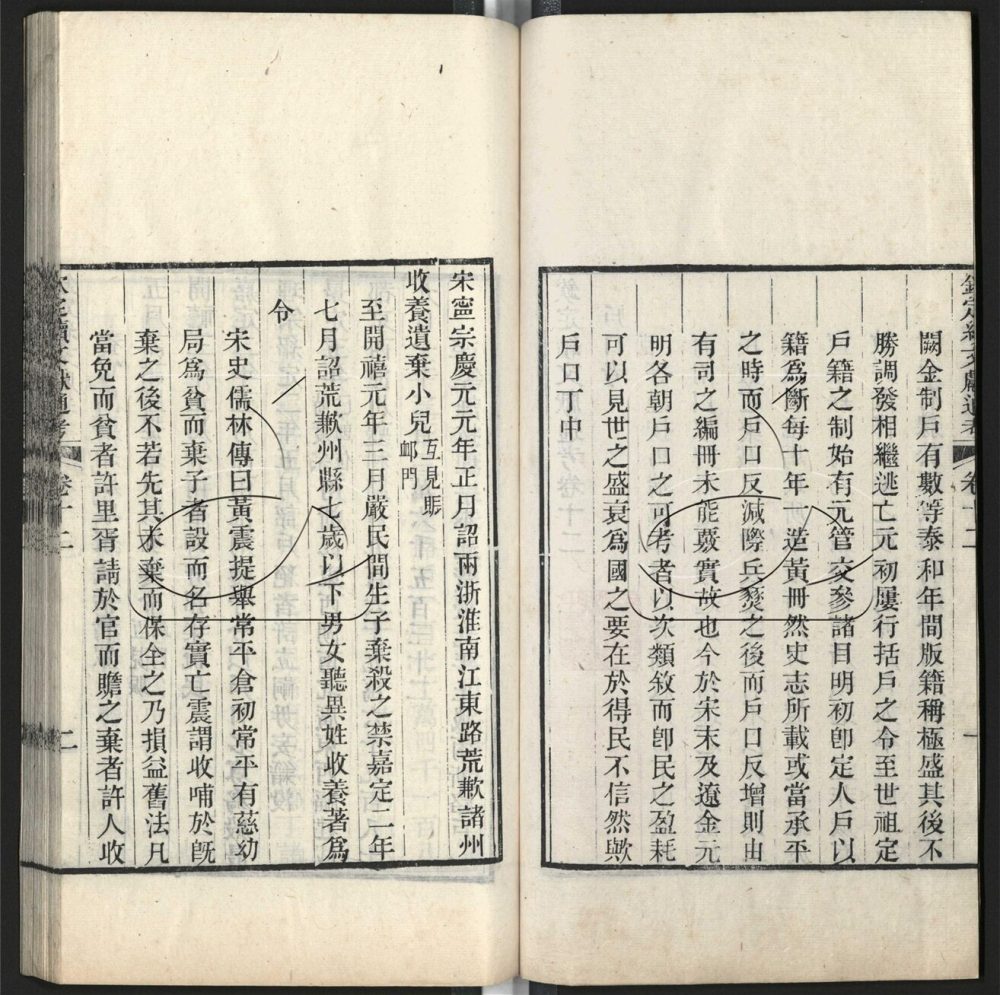 欽定續文獻通考 卷十二 一
闕金制戶有數等泰和年間版籍稱極盛其後不
勝調發相繼逃亡元初屢行括戶之令至世祖定
戶籍之制始有元管交參諸目明初卽定人戶以
籍爲斷每十年一造黃冊然史志所載或當承平
之時而戶口反減際兵燹之後而戶口反增則由
有司之編冊未能覈實故也今於宋末及遼金元
明各朝戶口之可考者以次類敘而卽民之盈耗
可以見世之盛衰爲國之要在於得民不信然歟
戶口丁中
宋寧宗慶元元年正月詔兩浙淮南江東路荒歉諸州
收養遺棄小兒互見賬
䘏門
至開禧元年三月嚴民間生子棄殺之禁嘉定二年
七月詔荒歉州縣七歲以下男女聽異姓收養著爲
令
宋史儒林傳曰黃震提舉常平倉初常平有慈幼
局爲貧而棄子者設而名存實亡震謂收哺於旣
棄之後不若先其未棄而保全之乃損益舊法凡
當免而貧者許里胥請於官而贍之棄者許人收
欽定續文獻通考 卷十二 二